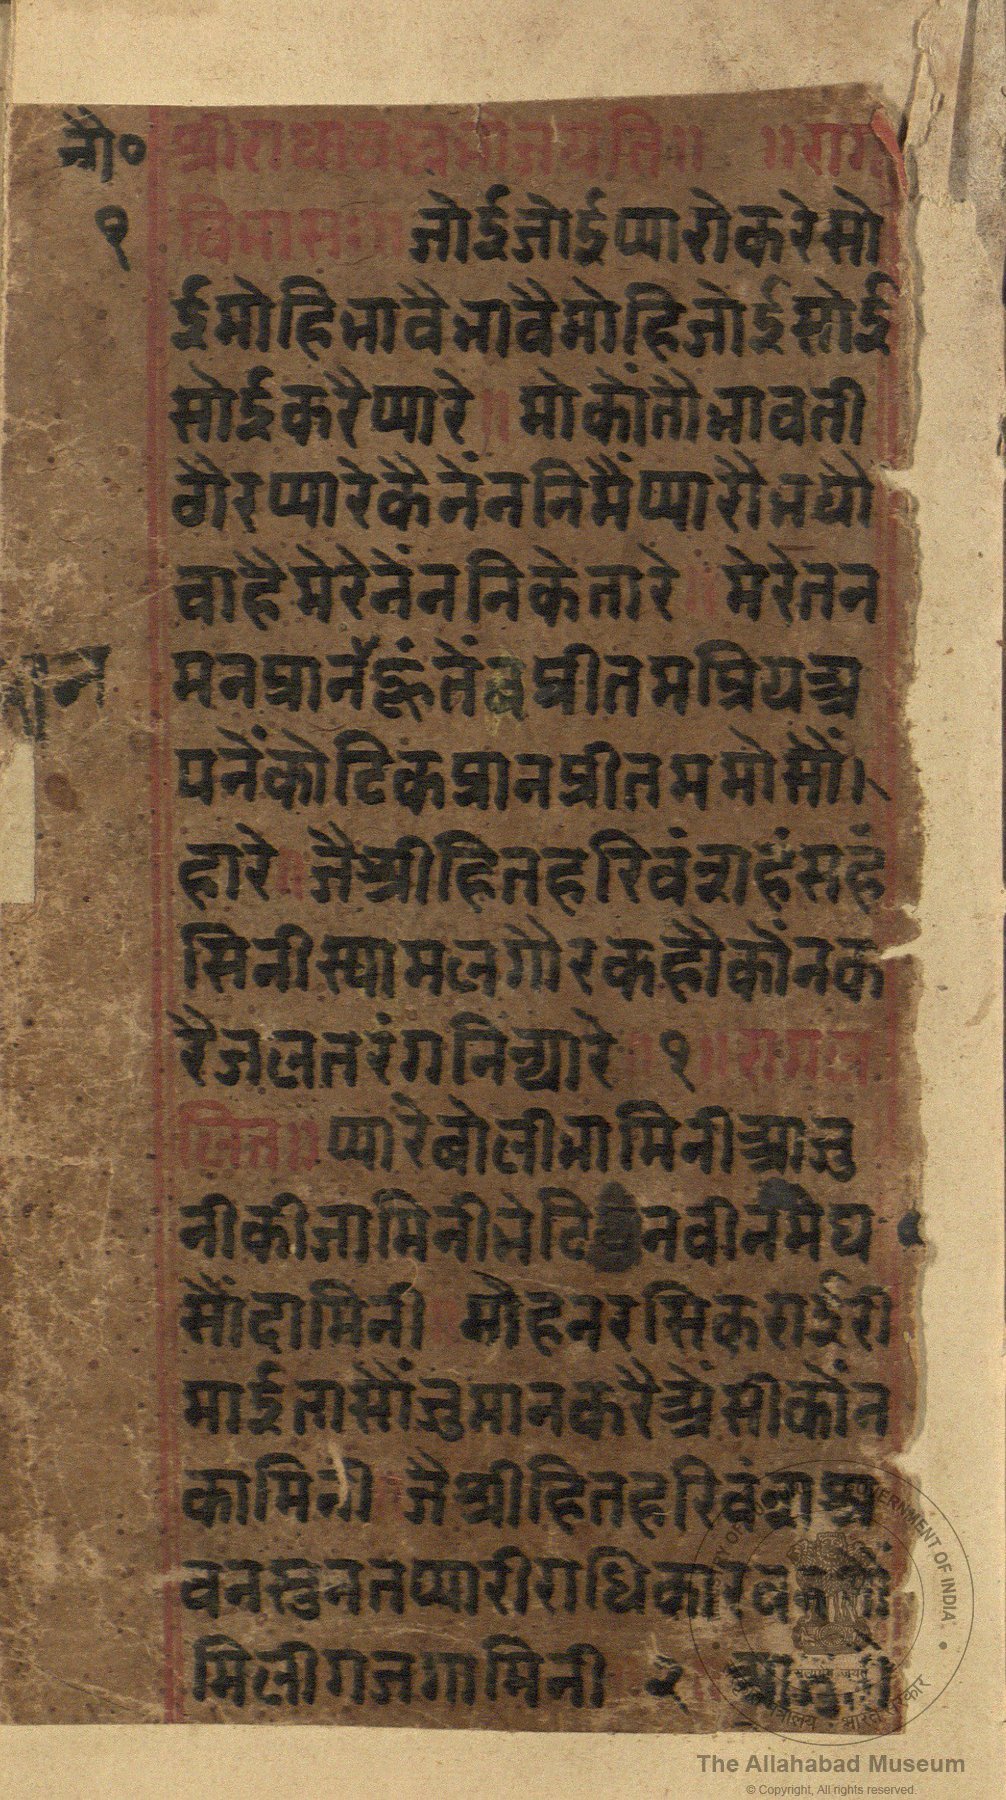 चौ० श्रीराधावल्लभोजयति॥ ॥राग
१ विभास॥ जोईजोईप्यारोकरेसो
ईमोहिभावैभावैमोहिजोईसोई
सोईकरैप्यारे॥मोकौंतौभावती
ठौरप्यारेकैनैंननिमैंप्यारौभयौ
चाहैमेरेनैंननिकेतारे॥मेरेतन
मनप्रानहूंतेंप्रीतमप्रियअ
पनेंकोटिकप्रानप्रीतममोसौं
हारे॥जैश्रीहितहरिवंशहंसहं
सिनीस्यामलगौरकहौकौंनक
रैजलतरंगनिन्यारे॥१॥रागल
लित॥प्यारेबोलीभामिनीआजु
नीकीजामिनीभेटिनवीनमेघ
सौंदामिनी॥मोहनरसिकराईरी
माईतासौंजुमानकरैऐसीकौंन
कामिनी॥जैश्रीहितहरिवंशश्र
वनसुनतप्यारीराधिकारवन
मिलीगजगामिनी॥२॥
The Allahabad Museum
© Copyright, All rights reserved.